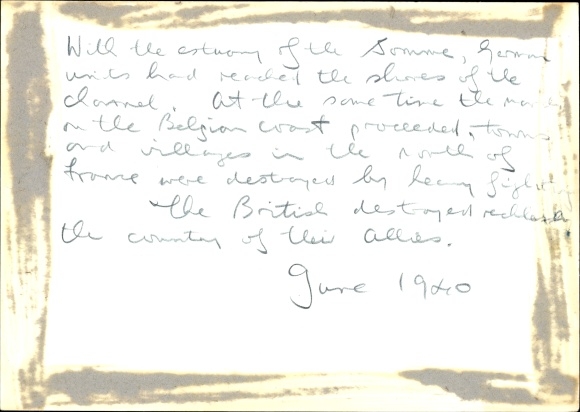 With the estuary of the Somme, German
units had reached the shores of the
channel. At the same time the
on the Belgian coast proceeded, towns
and villages in the north of
France were destroyed by heavy fighting
The British destroyed reckless
the country of their Allies.
June 1940